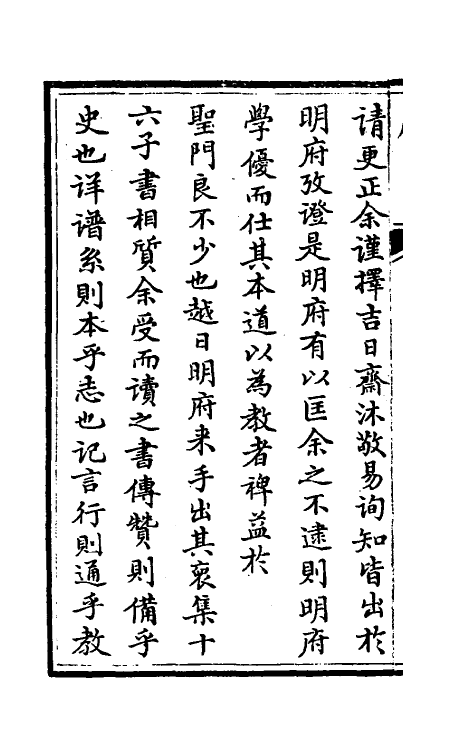 請更正余謹擇吉日齋沐敬易詢知皆出於
明府攷證是明府有以匡余之不逮則明府
學優而仕其本道以為教者裨益於
聖門良不少也越日明府来手出其裒集十
六子書相質余受而讀之書傳贊則備乎
史也详谱系則本乎志也记言行則通乎教